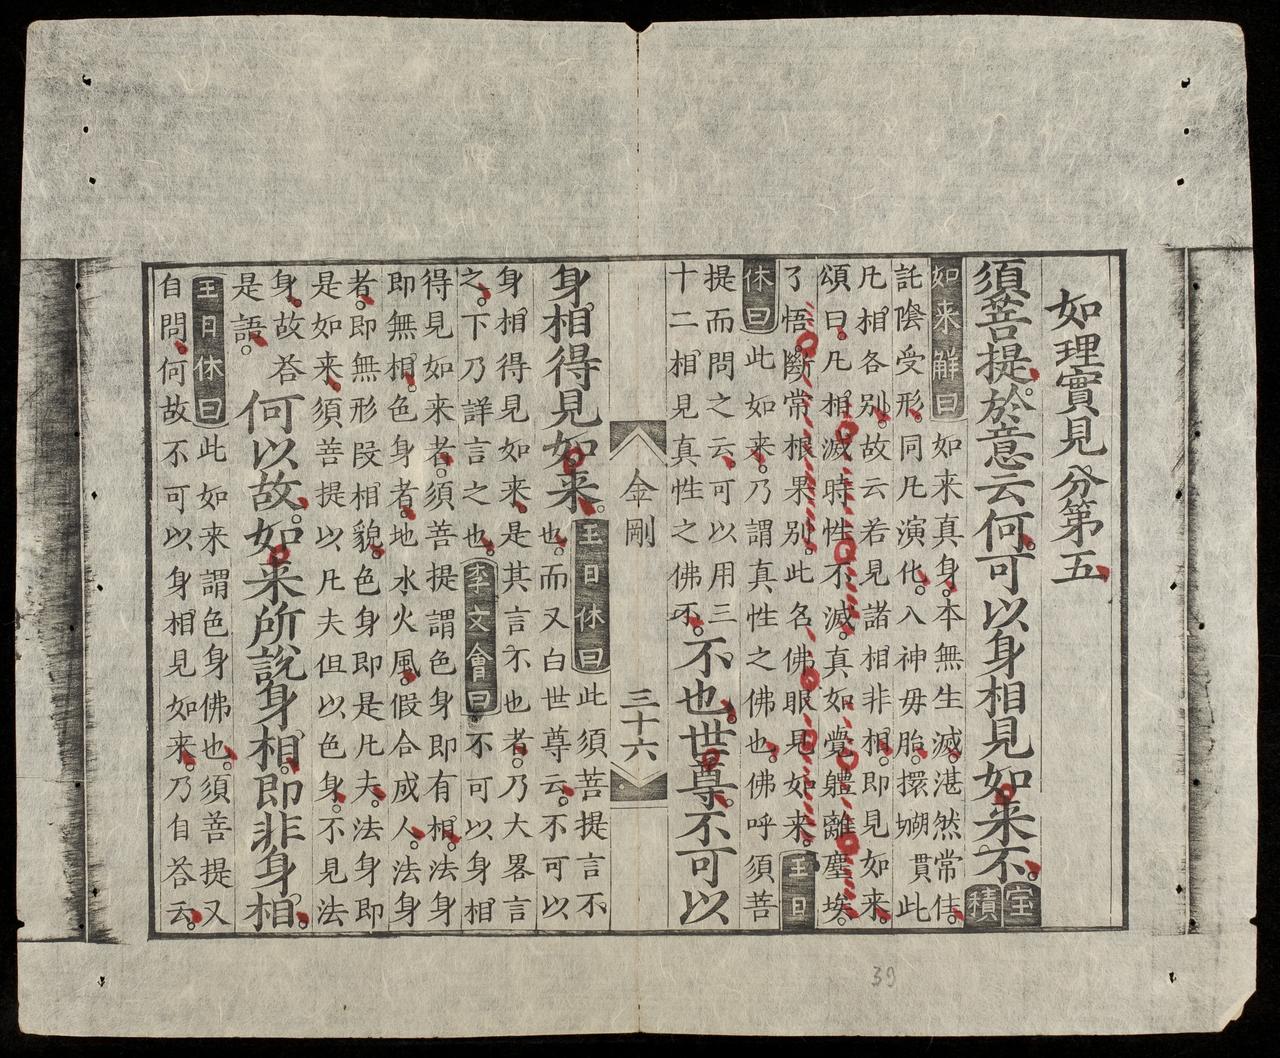 如理實見分第五
須菩提於意云何可以身相見如来不
宝積
如来解曰如来真身。本無生滅。湛然常住。
託陰受形。同凡演化。入神毋胎。擐 貫此
凡相各别。故云若見諸相非相。即見如来。
頌曰。凡相滅時性不滅。真如覺體離塵埃。
了悟斷常根果别。此名佛眼見如来。王日
休曰此如来。乃謂真性之佛也。佛呼須菩
提而問之云。可以用三
十二相見真性之佛不。
不也。世尊。不可以
金剛
三十六
身相得見如来。
王日休曰此須菩提言不
也。而又白世尊云。不可以
身相得見如来。是其言不也者。乃大畧言
之。下乃詳言之也。李文會曰不可以身相
得見如来者。須菩提謂色身即有相。法身
即無相。色身者。地水火風。假合成人。法身
者。即無形段相貌。色身即是凡夫。法身即
是如来。須菩提以凡夫但以色身。不見法
身。故荅
是語。
何以故。如来所說身相。即非身相。
王日休曰此如来謂色身佛也。須菩提又
自問。何故不可以身相見如来。乃自荅云。
39